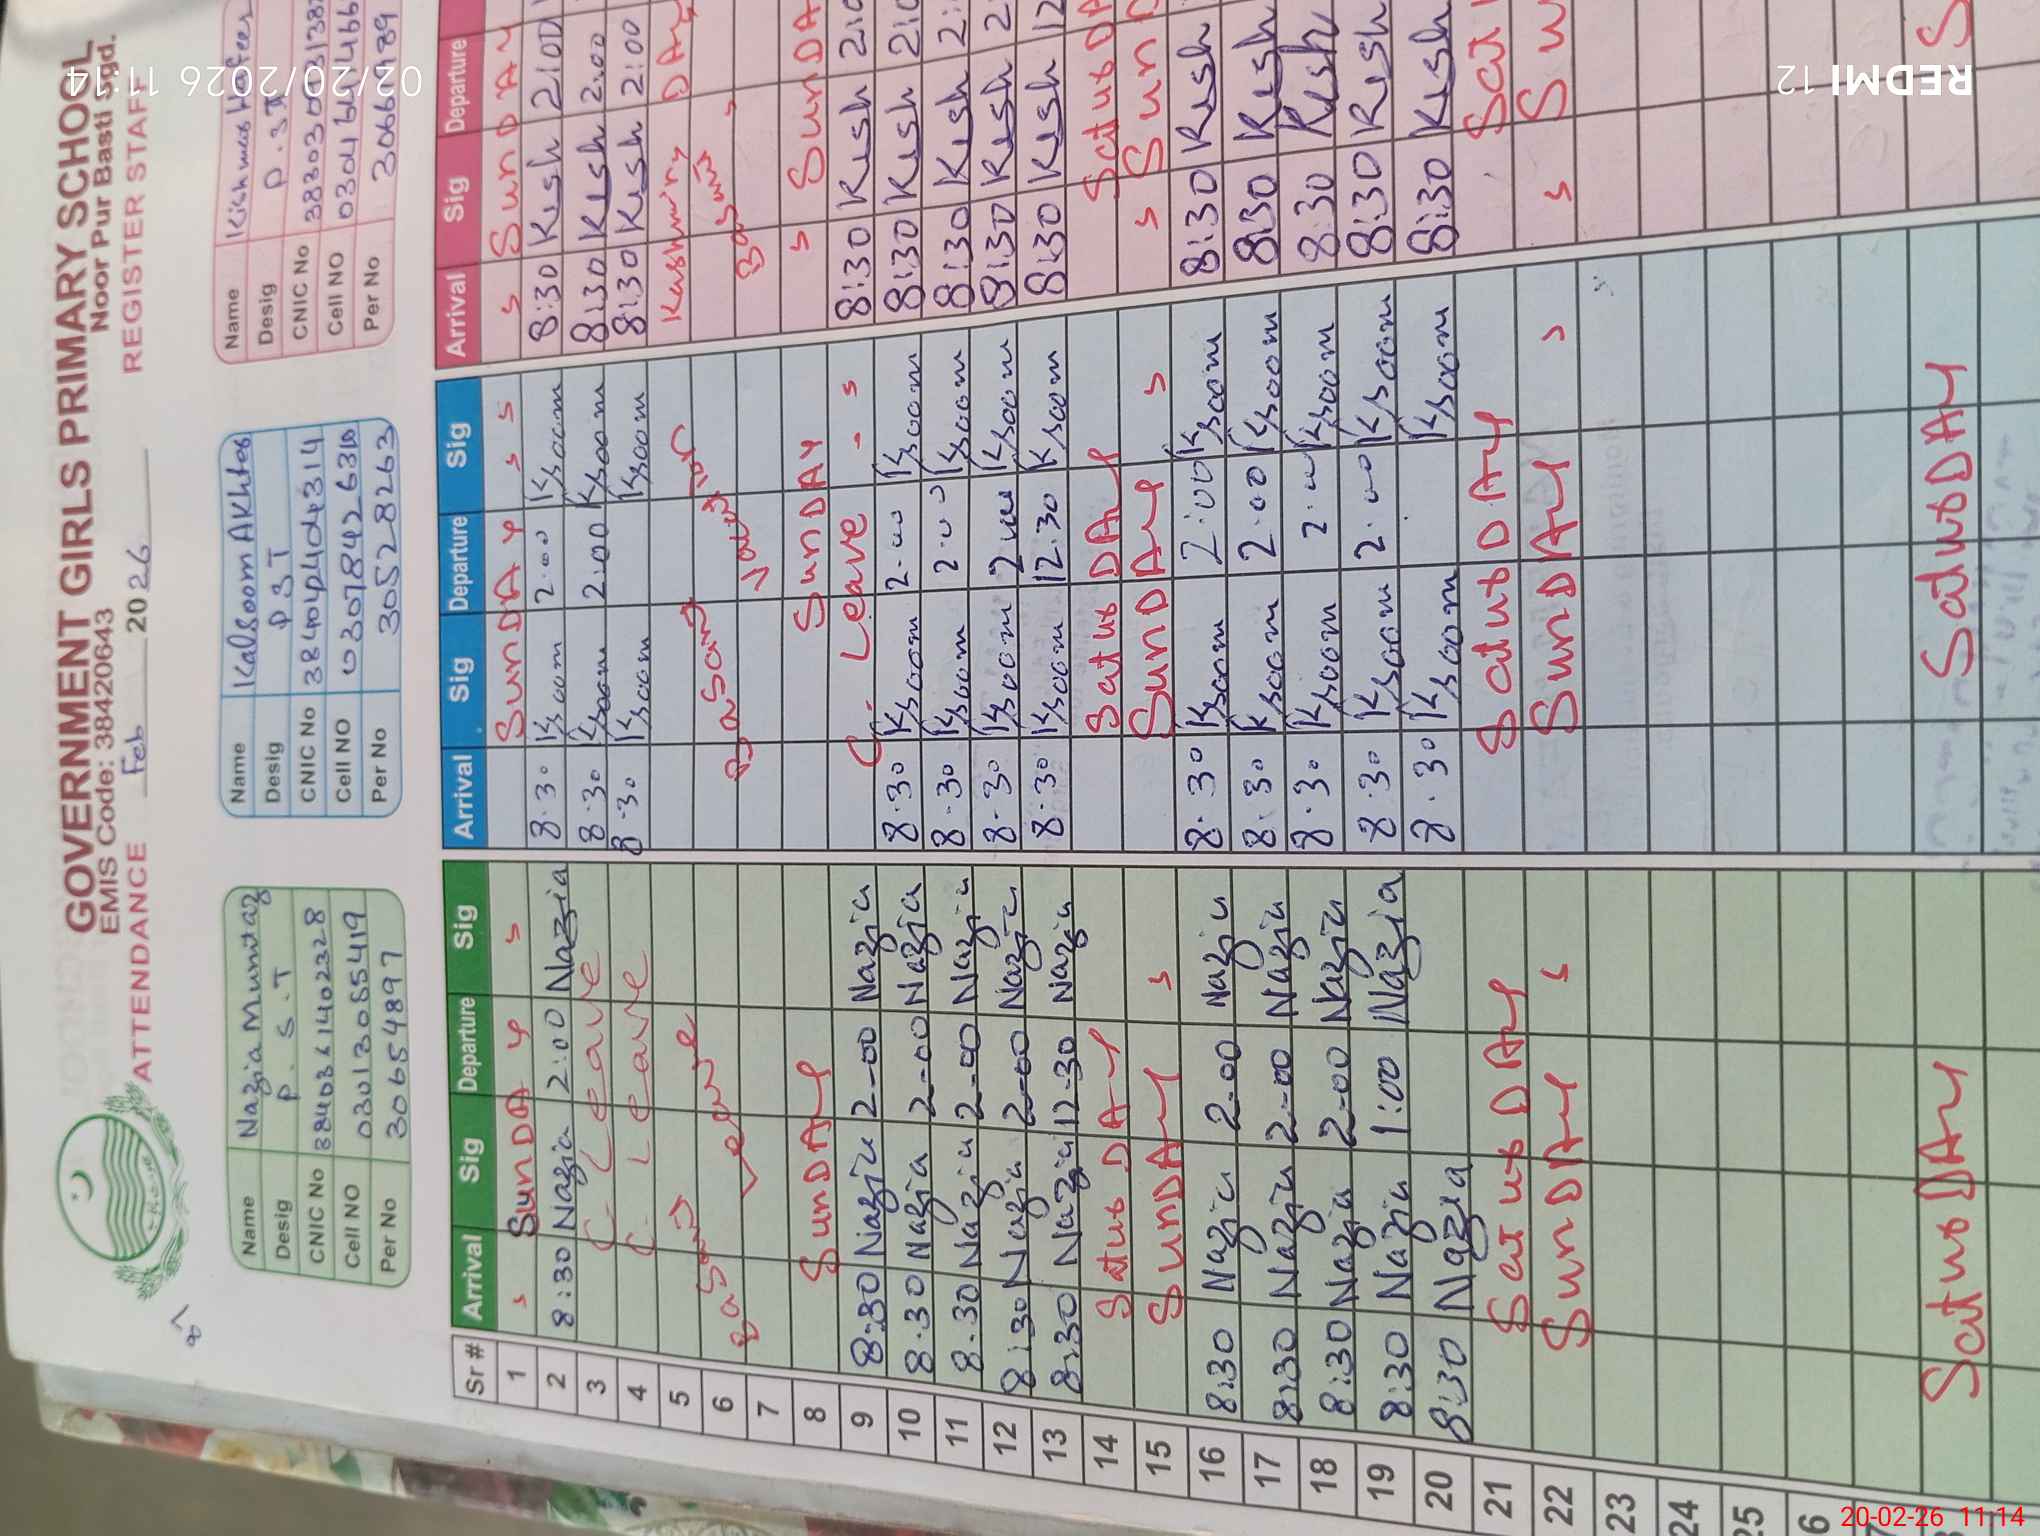 GOVERNMENT GIRLS PRIMARY SCHOOL
EMIS Code: 38420643 Noor Pur Basti sgd.
ATTENDANCE Feb 2026 REGISTER STAF
Name Nazia Mumtaz
Desig P.S.T
CNIC No
Cell NO 03013055419
Per No 30654897
Name Kalsoom Akhter
Desig PST
CNIC No
Cell NO 03078426310
Per No 30528263
Name
Desig P.ST
CNIC No
Cell NO
Per No
Sr # Arrival Sig Departure Sig Arrival Sig Departure Sig Arrival Sig Departure
1 SunDAy SunDAy SunDAy
2 8:30 Nazia 2:00 Nazia 8.30 Ksoom 2.00 Ksoom 8:30 Kish 2:00
3 C. Leave 8.30 Ksoom 2.00 Ksoom 8:30 Kish 2:00
4 C. Leave 8.30 Ksoom Ksoom 8:30 Kish 2:00
5 Kashmiry DAy
6
7
8 SunDAy SunDAy SunDA
9 8:30 Nazia 2-00 Nazia C. Leave 8:30 Kish
10 8.30 Nazia 2-00 Nazia 8.30 Ksoom 2.00 Ksoom 8:30 Kish
11 8.30 Nazia 2-00 Nazia 8.30 Ksoom 2.00 Ksoom 8:30 Kish
12 8:30 Nazia 2-00 Nazia 8.30 Ksoom 2.00 Ksoom 8:30 Kish
13 8:30 Nazia 12-30 Nazia 8.30 Ksoom 12.30 Ksoom 8:30 Kish 12
14 SaturDAy SaturDAy SaturDA
15 SunDAy SunDAy SunD
16 8:30 Nazia 2-00 Nazia 8.30 Ksoom 2:00 Ksoom 8:30 Kish
17 8:30 Nazia 2-00 Nazia 8.30 Ksoom 2.00 Ksoom 8:30 Kish
18 8:30 Nazia 2-00 Nazia 8.30 Ksoom 2.00 Ksoom 8:30 Kish
19 8:30 Nazia 1:00 Nazia 8.30 Ksoom 2.00 Ksoom 8:30 Kish
20 8:30 Nazia 8.30 Ksoom Ksoom 8:30 Kish
21 SaturDAy SaturDAy Sat
22 SunDAy SunDAy Su
23
24
25
6
SaturDAy SaturDAy S
02/20/2026 11:14
REDMI 12
20-02-26 11:14